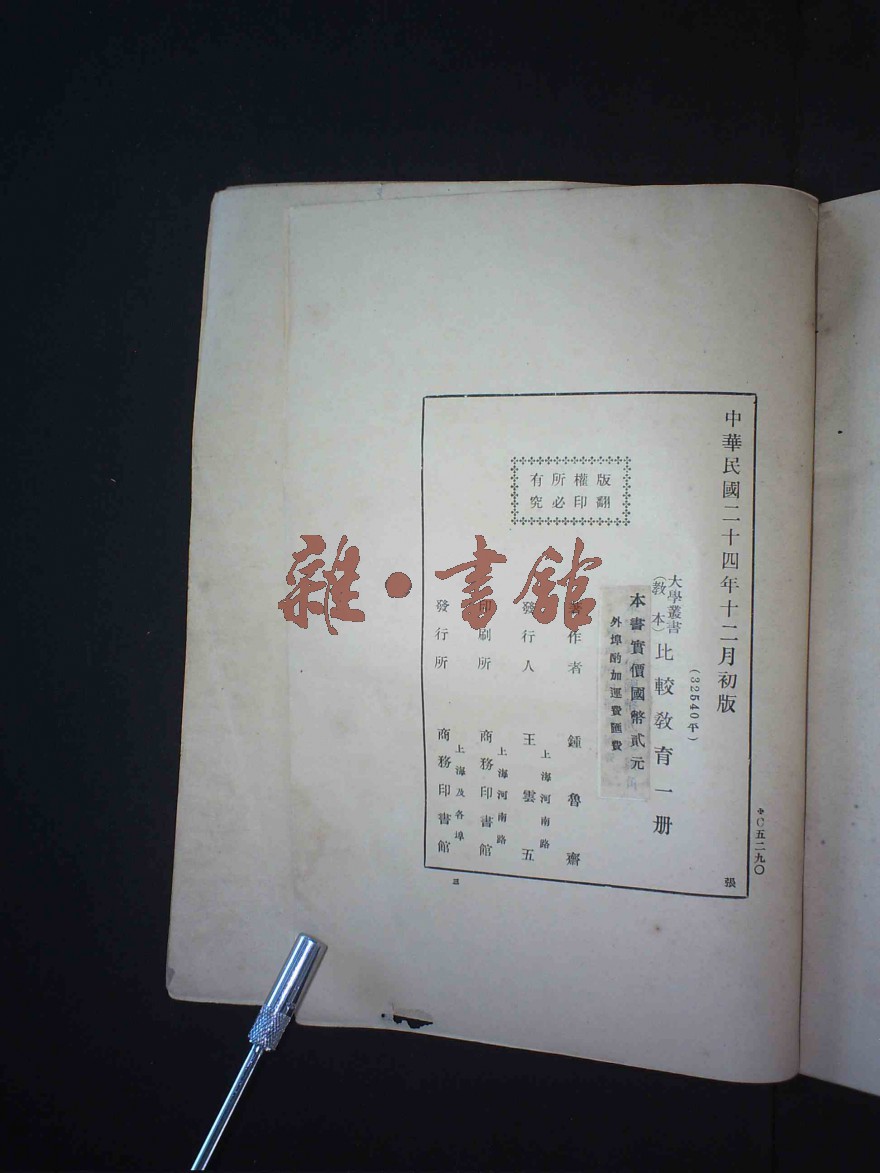 中華民國二十四年十二月初版
(32540平)
大學叢書
(教本)
比較教育一册
本書實價國幣貳元
外埠酌加運費匯費
版權所有
翻印必究
著作者 鍾魯齋
上海河南路
發行人 王雲五
上海河南路
印刷所 商務印書館
上海及各埠
發行所 商務印書館
＊C五二九〇
張
雜·書館